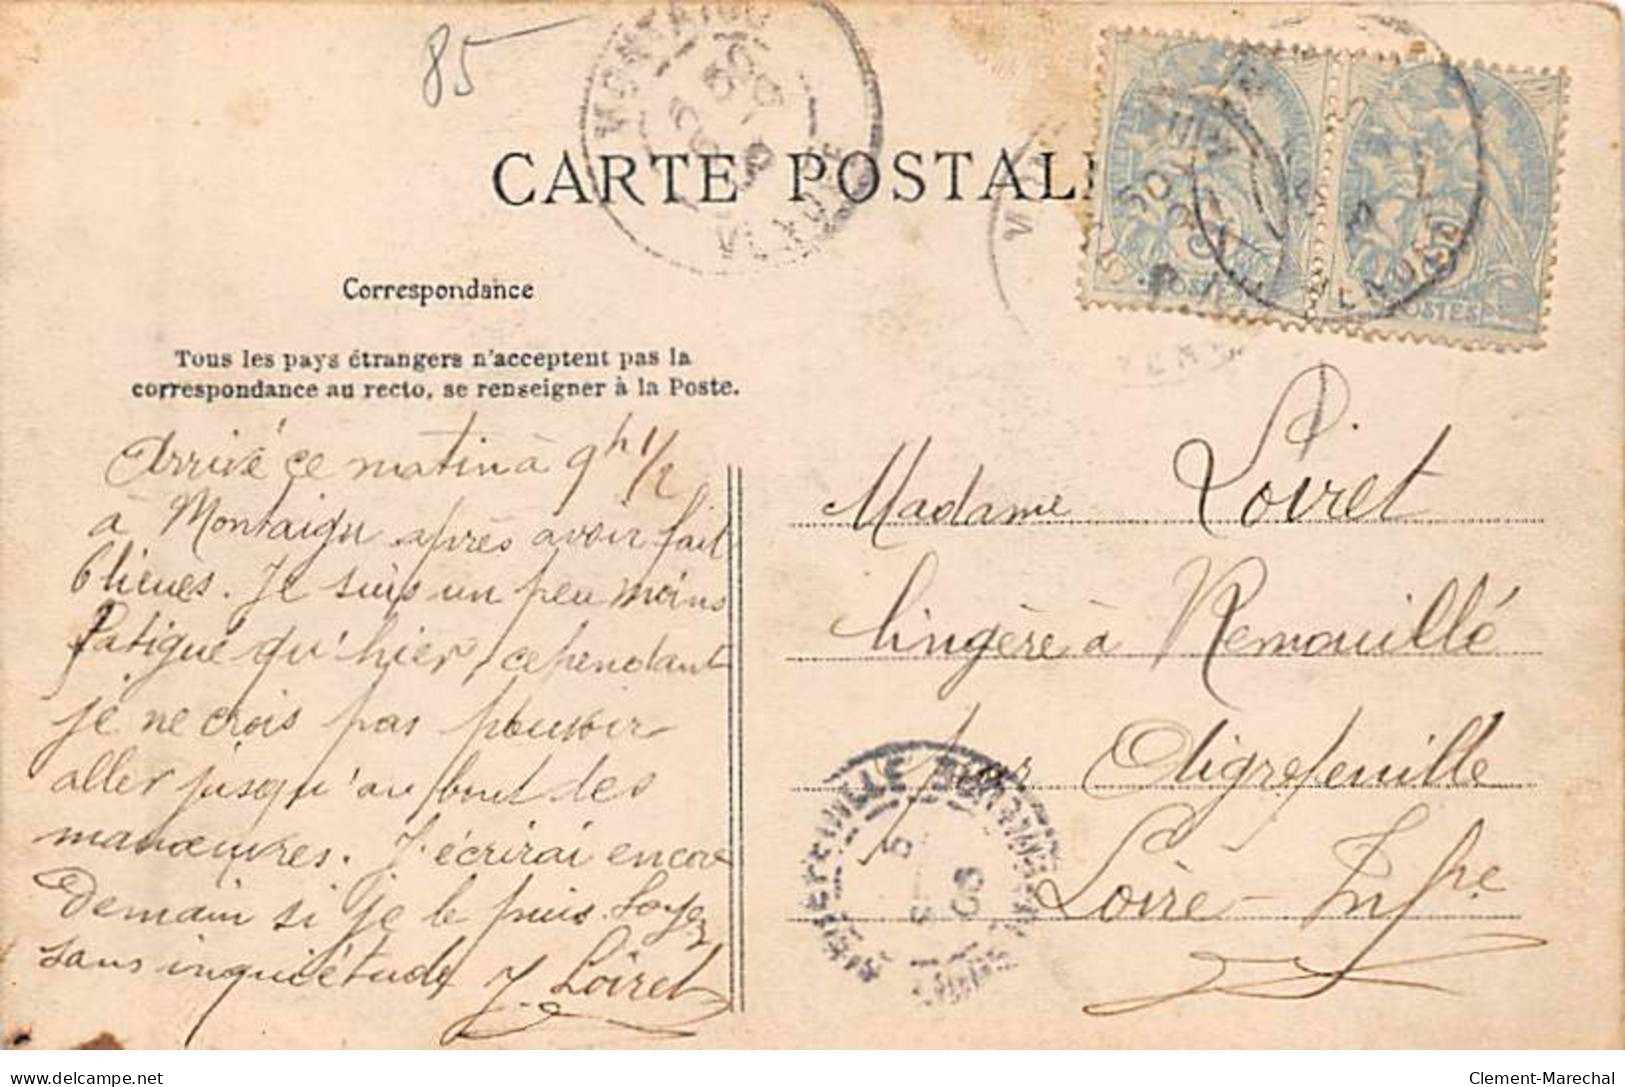 85
MONTAIGU
VENDÉE
CARTE POSTALE
POSTES
VENDÉE
POSTES
Correspondance
Tous les pays étrangers n'acceptent pas la
correspondance au recto, se renseigner à la Poste.
Arrivé ce matin à 9h 1/2
à Montaigu après avoir fait
6 lieues. Je suis un peu moins
fatigué qu'hier, cependant
je ne crois pas pouvoir
aller jusqu'au bout des
manœuvres. J'écrirai encore
Demain si je le puis. Soyez
sans inquiétude J. Loiret
Madame Loiret
lingère à Remouillé
par Aigrefeuille
Loire-Infre
Clement-Marechal
www.delcampe.net